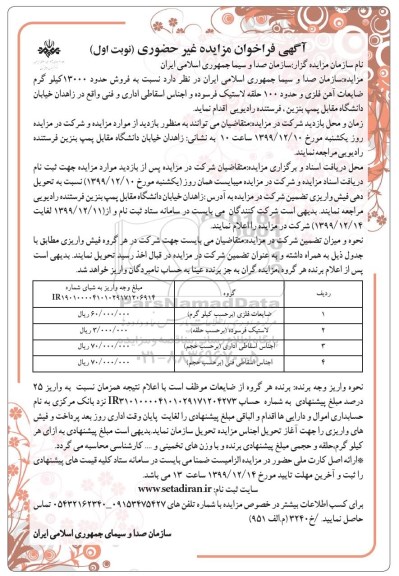 آگهی فراخوان مزایده غیر حضوری (نوبت اول)
نام سازمان مزایده گزار:سازمان صدا و سیما جمهوری اسلامی ایران
مزایده:سازمان صدا و سیما جمهوری اسلامی ایران در نظر دارد نسبت به فروش حدود ۱۳۰۰۰کیلو گرم
ضایعات آهن فلزی و حدود ۱۰۰ حلقه لاستیک فرسوده و اجناس اسقاطی اداری و فنی واقع در زاهدان خیابان
دانشگاه مقابل پمپ بنزین ، فرستنده رادیویی اقدام نماید.
زمان و محل بازدید شرکت در مزایده:متقاضیان می توانند به منظور بازدید از موارد مزایده و شرکت در مزایده
روز یکشنبه مورخ ۱۳۹۹/۱۲/۱۰ ساعت ۱۰ به نشانی: زاهدان خیابان دانشگاه مقابل پمپ بنزین فرستنده
رادیویی مراجعه نمایند.
محل دریافت اسناد و برگزاری مزایده:متقاضیان شرکت در مزایده پس از بازدید موارد مزایده جهت ثبت نام
دریافت اسناد مزایده و شرکت در مزایده میبایست همان روز (یکشنبه مورخ ۱۳۹۹/۱۲/۱۰) نسبت به تحویل
دهی فیش واریزی تضمین شرکت در مزایده به آدرس :زاهدان خیابان دانشگاه مقابل پمپ بنزین فرستنده رادیویی
مراجعه نمایند. بدیهی است شرکت کنندگان می بایست در سامانه ستاد ثبت نام و از(۱۳۹۹/۱۲/۱۱ لغایت
۱۳۹۹/۱۲/۱۴) شرکت در مزایده را اعلام نمایند.
نحوه و میزان تضمین شرکت در مزایده:متقاضیان می بایست جهت شرکت در هر گروه فیش واریزی مطابق با
جدول ذیل به همراه داشته و به عنوان تضمین شرکت در مزایده در قبال اخذ رسید تحویل نمایند. بدیهی است
پس از اعلام برنده هر گروه،مزایده گران به جز برنده عینا به حساب نامبردگان واریز خواهد شد.
ردیف گروه مبلغ وجه واریز به شبای شماره IR۱۹۰۱۰۰۰۰۴۱۰۱۰۲۹۱۷۱۲۰۶۹۱۴
۱ ضایعات فلزی (برحسب کیلو گرم) ۶۰/۰۰۰/۰۰۰ ریال
۲ لاستیک فرسوده (برحسب حلقه) ۳/۰۰۰/۰۰۰ ریال
۳ اجناس اسقاطی اداری (برحسب حجم) ۷۰/۰۰۰/۰۰۰ ریال
۴ اجناس اسقاطی فنی (برحسب حجم) ۷۰/۰۰۰/۰۰۰ ریال
نحوه واریز وجه برنده: برنده هر گروه از ضایعات موظف است با اعلام نتیجه همزمان نسبت به واریز ۲۵
درصد مبلغ پیشنهادی به شماره حساب IR۳۱۰۱۰۰۰۰۴۱۰۱۰۲۹۱۷۱۲۰۴۲۷۳ نزد بانک مرکزی به نام
حسابداری اموال و دارایی ها اقدام و الباقی مبلغ پیشنهادی را لغایت پایان وقت اداری روز بعد پرداخت و فیش
های واریزی را جهت آغاز تحویل اجناس مزایده تحویل سازمان نماید.بدیهی است مبلغ پیشنهادی به ازای هر
کیلو گرم،حلقه و حجمی مبلغ پیشنهادی برنده و با وزن های تخمینی و .... کارشناسی محاسبه می گردد.
*ارائه اصل کارت ملی حضور در مزایده الزامیست ضمنا می بایست در سامانه ستاد کلیه قیمت های پیشنهادی
را ثبت و آخرین مهلت تایید مورخ ۱۳۹۹/۱۲/۱۴ ساعت ۱۳ می باشد.
سایت ثبت نام: www.setadiran.ir
برای کسب اطلاعات بیشتر در خصوص مزایده با شماره تلفن های ۰۹۱۵۳۴۷۵۴۲۷_۰۵۴۳۲۱۶۲۳۴۰ تماس
حاصل نمایید. /خ۳۲۴۰ (م.الف ۹۵۱)
سازمان صدا و سیمای جمهوری اسلامی ایران